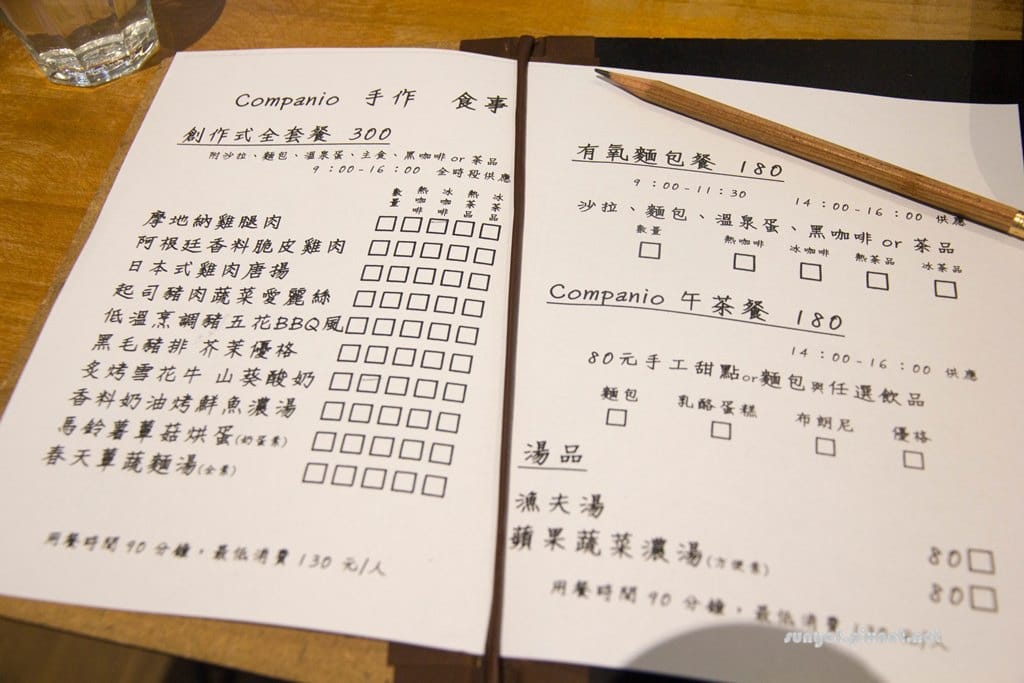 Companio 手作 食事
創作式全套餐 300
附沙拉、麵包、溫泉蛋、主食、黑咖啡 or 茶品
9：00-16：00 全時段供應
數量 熱咖啡 冰咖啡 熱茶品 冰茶品
摩地納雞腿肉
阿根廷香料脆皮雞肉
日本式雞肉唐揚
起司豬肉蔬菜愛麗絲
低溫烹調豬五花BBQ風
黑毛豬排 芥茉優格
炙烤雪花牛 山葵酸奶
香料奶油烤鮮魚濃湯
馬鈴薯蕈菇烘蛋(奶蛋素)
春天蕈蔬麵湯(全素)
用餐時間90分鐘，最低消費130元/人
有氧麵包餐 180
9：00-11：30 14：00-16：00 供應
沙拉、麵包、溫泉蛋、黑咖啡 or 茶品
數量 熱咖啡 冰咖啡 熱茶品 冰茶品
Companio 午茶餐 180
14：00-16：00 供應
80元手工甜點or麵包與任選飲品
麵包 乳酪蛋糕 布朗尼 優格
湯品
漁夫湯 80
蘋果蔬菜濃湯(方便素) 80
用餐時間90分鐘，最低消費130元/人